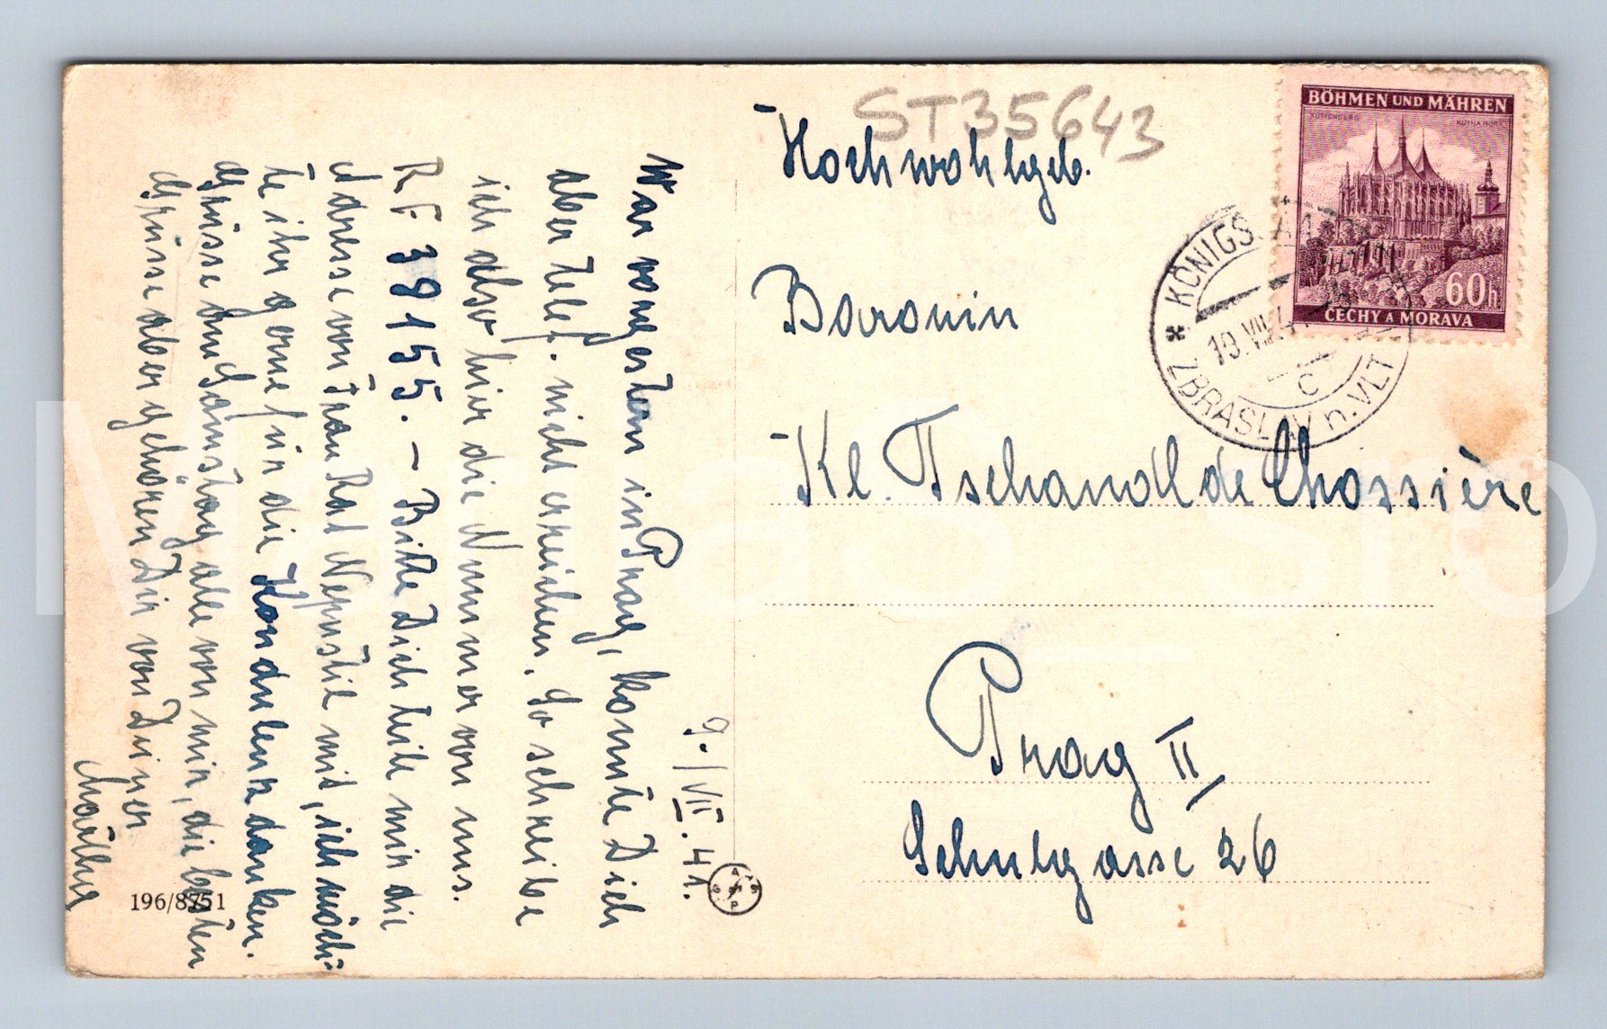 9./VII.41.
War vorgestern in Prag, konnte Dich
aber telef. nicht erreichen. So schreibe
ich also hier die Nummer von uns.
RF 39155. – Bitte Dich teile mir die
Adresse von Frau Rat Nepustil mit, ich möch-
te ihr gerne für die Kondulenz danken.
Grüsse am Samstag alle von mir, die besten
Grüsse aber gehören Dir von Deiner
196/8751
ST35643
Hochwohlgeb.
Baronin
Kl. Tschandl de Chossière
Prag II
Schulgasse 26
BÖHMEN UND MÄHREN
KUTTENBERG KUTNÁ HORA
60h
ČECHY A MORAVA
KÖNIGS
10.VII.41
C
ZBRASLAV n. VLT